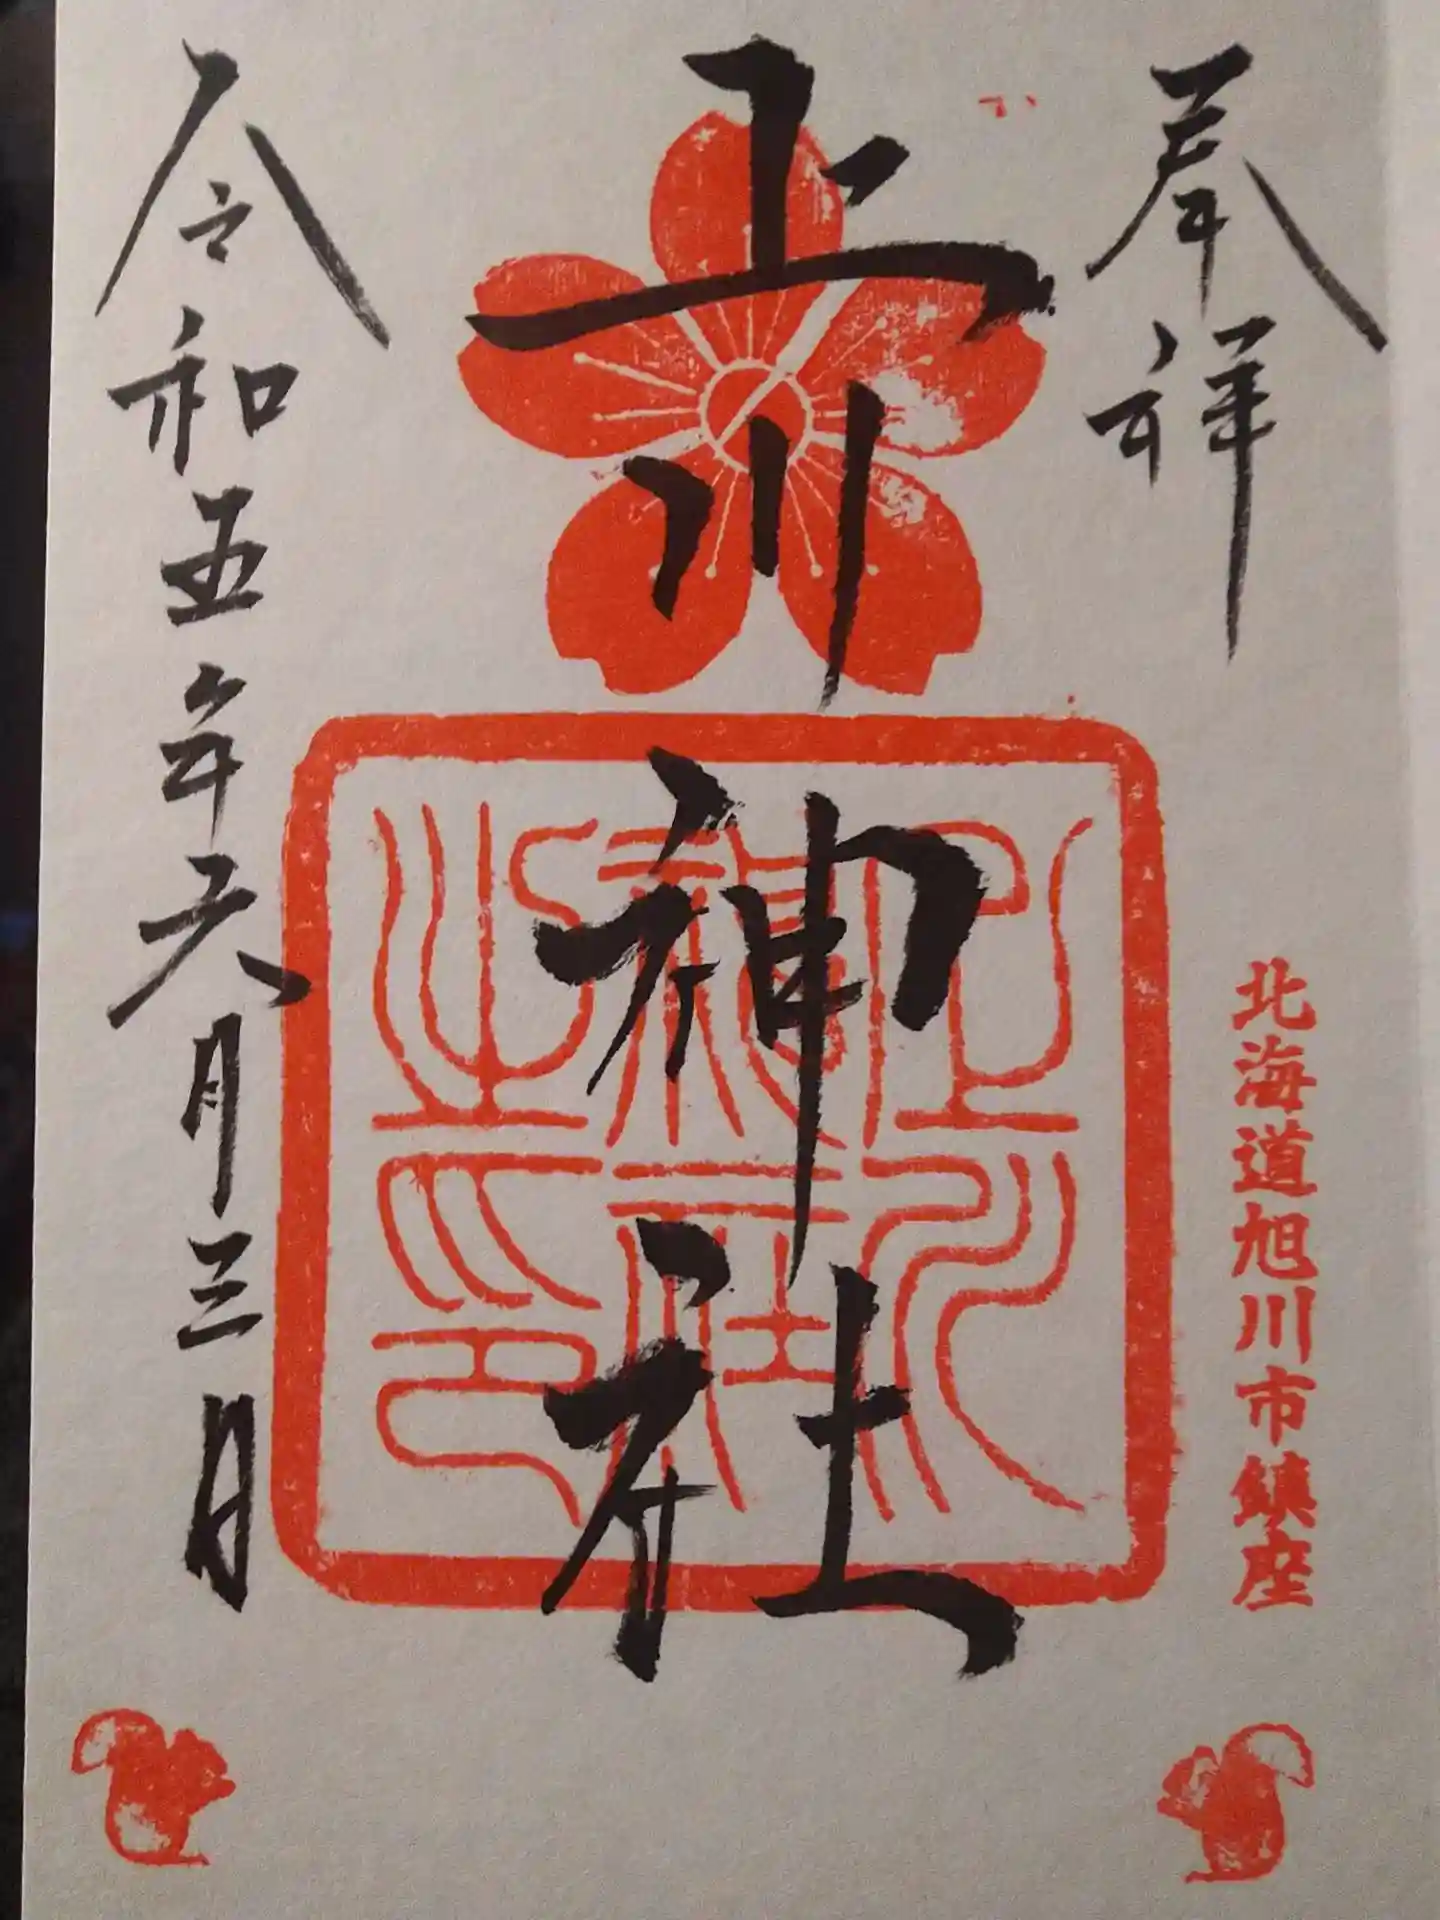 奉拝
北海道旭川市鎮座
上川神社
上川
神社
之印
令和五年六月三日